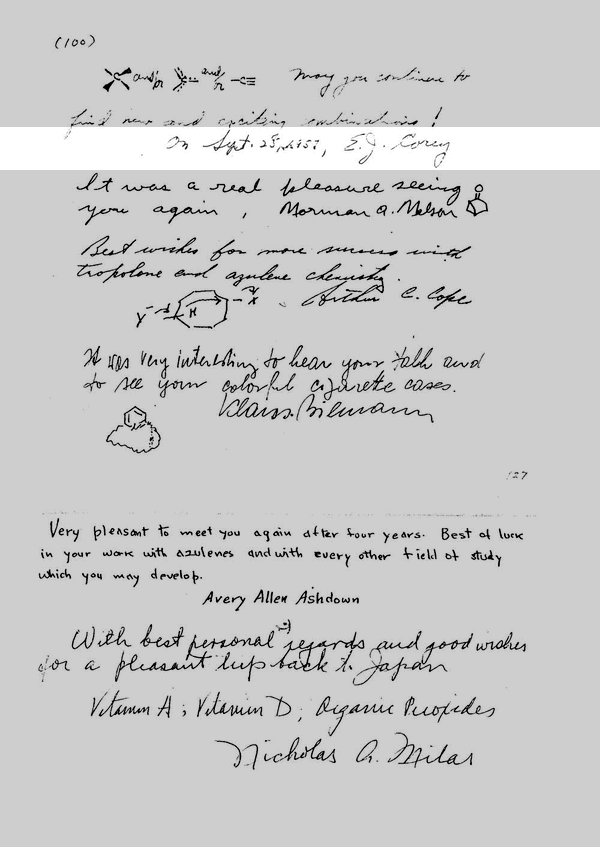 (100)
and/or and/or May you continue to
find new and exciting combinations!
On Sept. 25, 1957, E.J. Corey
It was a real pleasure seeing
you again, Norman A. Nelson
Best wishes for more success with
tropolone and azulene chemistry.
Arthur C. Cope
Y H X
It was very interesting to hear your talk and
to see your colorful cigarette cases.
Klaus Biemann
127
Very pleasant to meet you again after four years. Best of luck
in your work with azulenes and with every other field of study
which you may develop.
Avery Allen Ashdown
With best personal regards and good wishes
for a pleasant trip back to Japan
Vitamin A; Vitamin D; Organic Peroxides
Nicholas A. Milas